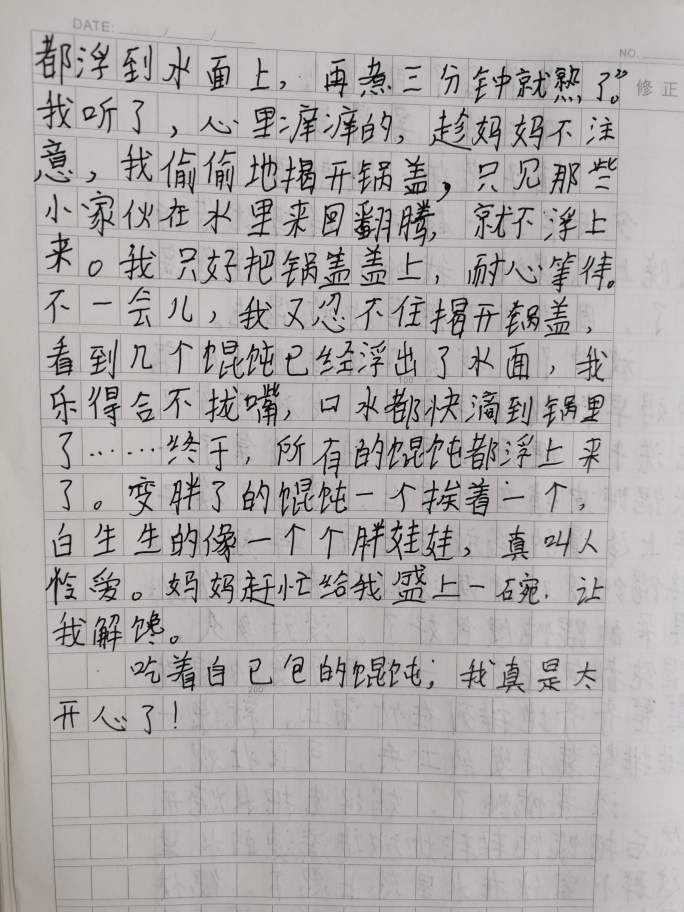 DATE: ____/____/____
NO.
修正
都浮到水面上，再煮三分钟就熟了。”
我听了，心里痒痒的，趁妈妈不注
意，我偷偷地揭开锅盖，只见那些
小家伙在水里来回翻腾，就不浮上
来。我只好把锅盖盖上，耐心等待。
不一会儿，我又忍不住揭开锅盖，
看到几个馄饨已经浮出了水面，我
乐得合不拢嘴，口水都快滴到锅里
了……终于，所有的馄饨都浮上来
了。变胖了的馄饨一个挨着一个，
白生生的像一个个胖娃娃，真叫人
怜爱。妈妈赶忙给我盛上一碗，让
我解馋。
吃着自己包的馄饨，我真是太
开心了！
100
200